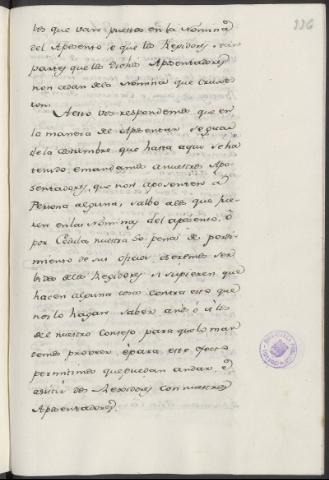 336
los que van puestos en la Nomina
del Aposento, e que los Regidores
partes que los dichos Aposentadores
non cedan dela Nomina que
A esto vos respondemos que en
la manera de Aposentar se guar
de la costumbre que hasta aqui se ha
tenido, e mandamos a nuestros Apo
sentadores, que non aposenten a
Persona alguna, salbo a los que fue
ren en las Nominas del aposento, ó
por Cédula nuestra so pena de perdi
miento de sus oficios, e seremos ser
bidos delos Regidores si supieren que
hacen alguna cosa contra esto que
nos lo hagan saber, a nos ó á los
del nuestro Consejo para que lo man
demos proveer, é para este efecto
permitimos que puedan andar, é
asistir los Regidores con nuestros
Aposentadores